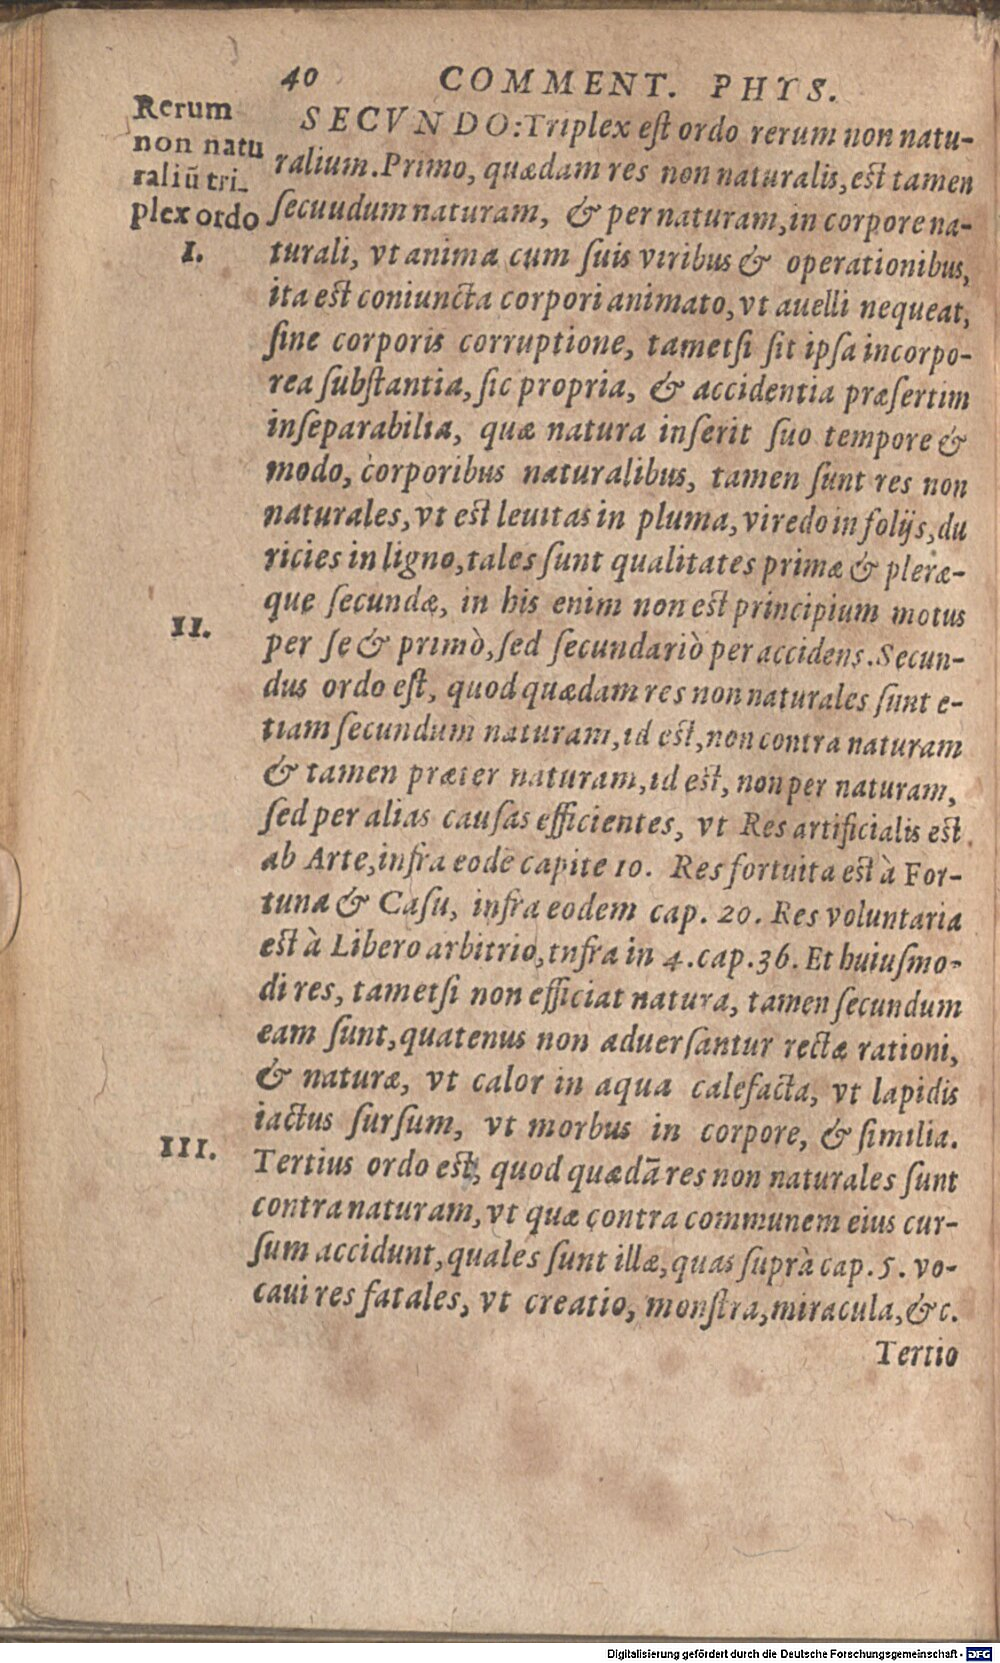 40 COMMENT. PHYS.
Rerum
non natu
raliū tri-
plex ordo
I.
SECVNDO: Triplex est ordo rerum non natu-
ralium. Primo, quædam res non naturalis, est tamen
secuudum naturam, & per naturam, in corpore na-
turali, vt anima cum suis viribus & operationibus,
ita est coniuncta corpori animato, vt auelli nequeat,
sine corporis corruptione, tametsi sit ipsa incorpo-
rea substantia, sic propria, & accidentia præsertim
inseparabilia, quæ natura inserit suo tempore &
modo, corporibus naturalibus, tamen sunt res non
naturales, vt est leuitas in pluma, viredo in folijs, du
ricies in ligno, tales sunt qualitates primæ & pleræ-
que secundæ, in his enim non est principium motus
II.
per se & primò, sed secundariò per accidens. Secun-
dus ordo est, quod quædam res non naturales sunt e-
tiam secundum naturam, id est, non contra naturam
& tamen præter naturam, id est, non per naturam,
sed per alias causas efficientes, vt Res artificialis est
ab Arte, infra eodē capite 10. Res fortuita est à For-
tuna & Casu, infra eodem cap. 20. Res voluntaria
est à Libero arbitrio, infra in 4. cap. 36. Et huiusmo-
di res, tametsi non efficiat natura, tamen secundum
eam sunt, quatenus non aduersantur rectæ rationi,
& naturæ, vt calor in aqua calefacta, vt lapidis
iactus sursum, vt morbus in corpore, & similia.
III.
Tertius ordo est, quod quædā res non naturales sunt
contra naturam, vt quæ contra communem eius cur-
sum accidunt, quales sunt illæ, quas suprà cap. 5. vo-
caui res fatales, vt creatio, monstra, miracula, &c.
Tertio
Digitalisierung gefördert durch die Deutsche Forschungsgemeinschaft - DFG